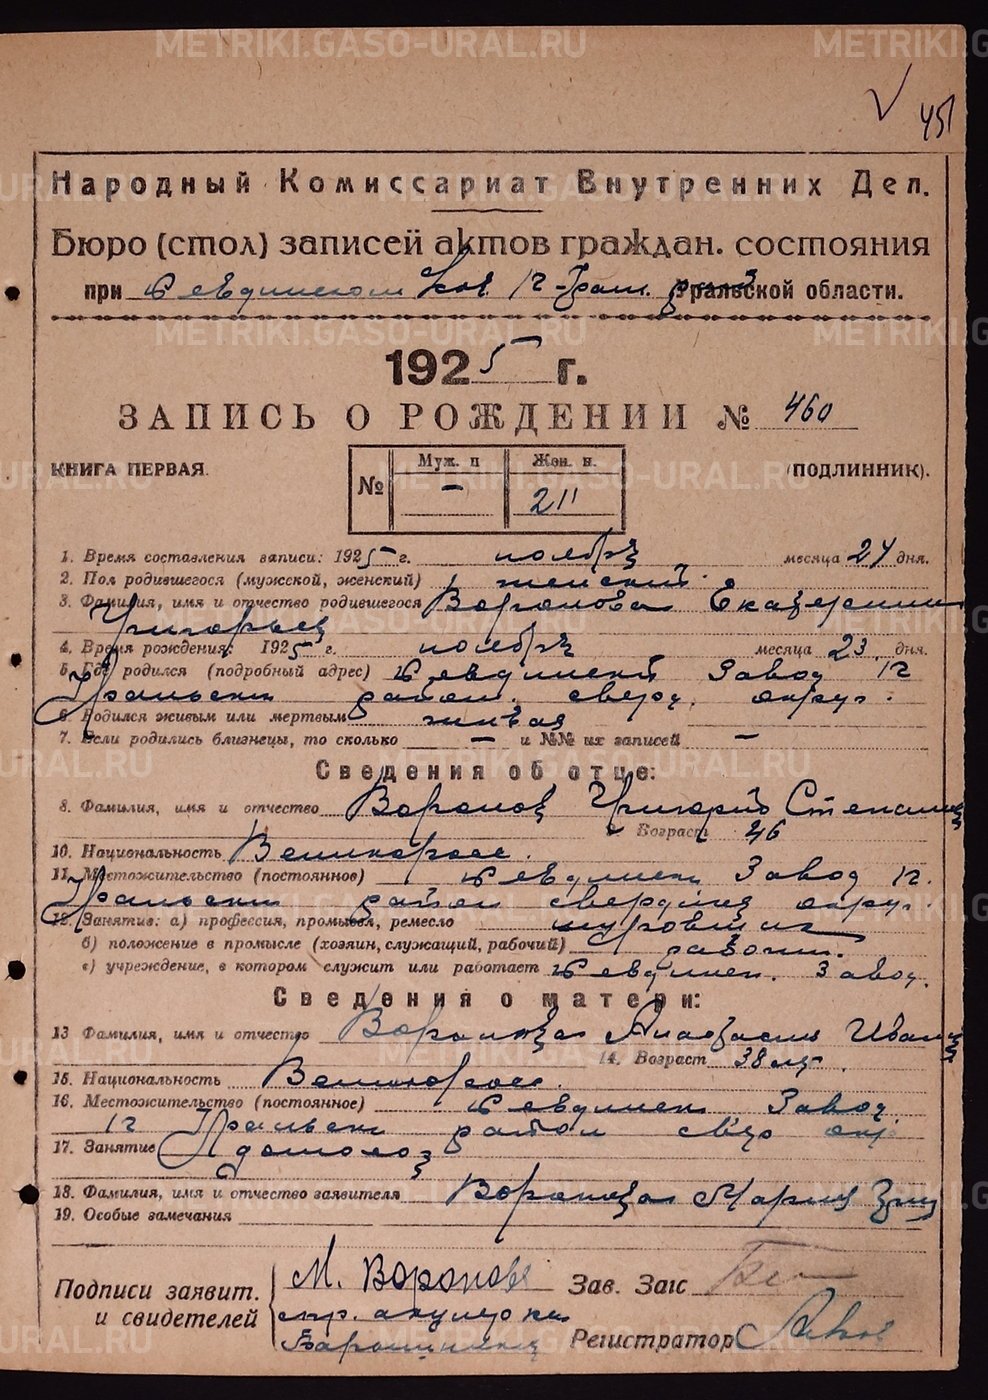 METRIKI.GASO-URAL.RU
451
Народный Комиссариат Внутренних Дел.
Бюро (стол) записей актов граждан. состояния
при Уральской области.
1925 г.
ЗАПИСЬ О РОЖДЕНИИ № 460
КНИГА ПЕРВАЯ. (ПОДЛИННИК).
№ Муж. п Жен. п.
— 211
1. Время составления записи: 1925 г. ноября месяца 24 дня.
2. Пол родившегося (мужской, женский) женский
3. Фамилия, имя и отчество родившегося Воронова Екатерина
Григорьев
4. Время рождения: 1925 г. ноября месяца 23 дня.
5. Где родился (подробный адрес) Завод
Уральский район. сверд. округ.
6. Родился живым или мертвым живая
7. Если родились близнецы, то сколько — и №№ их записей —
Сведения об отце:
8. Фамилия, имя и отчество Воронов Григорий Степанов
Возраст 46
10. Национальность Великоросс.
11. Местожительство (постоянное) Завод
Уральский район округ.
12. Занятие: а) профессия, промысел, ремесло
б) положение в промысле (хозяин, служащий, рабочий) рабочий.
в) учреждение, в котором служит или работает Завод.
Сведения о матери:
13 Фамилия, имя и отчество Воронова Анастасия Иван
14. Возраст 38 лет.
15. Национальность Великоросс.
16. Местожительство (постоянное) Завод
Уральский район окр
17. Занятие домохоз
18. Фамилия, имя и отчество заявителя Воронова Мария
19. Особые замечания
Подписи заявит. М. Воронова Зав. Загс
и свидетелей акушерка
Регистратор